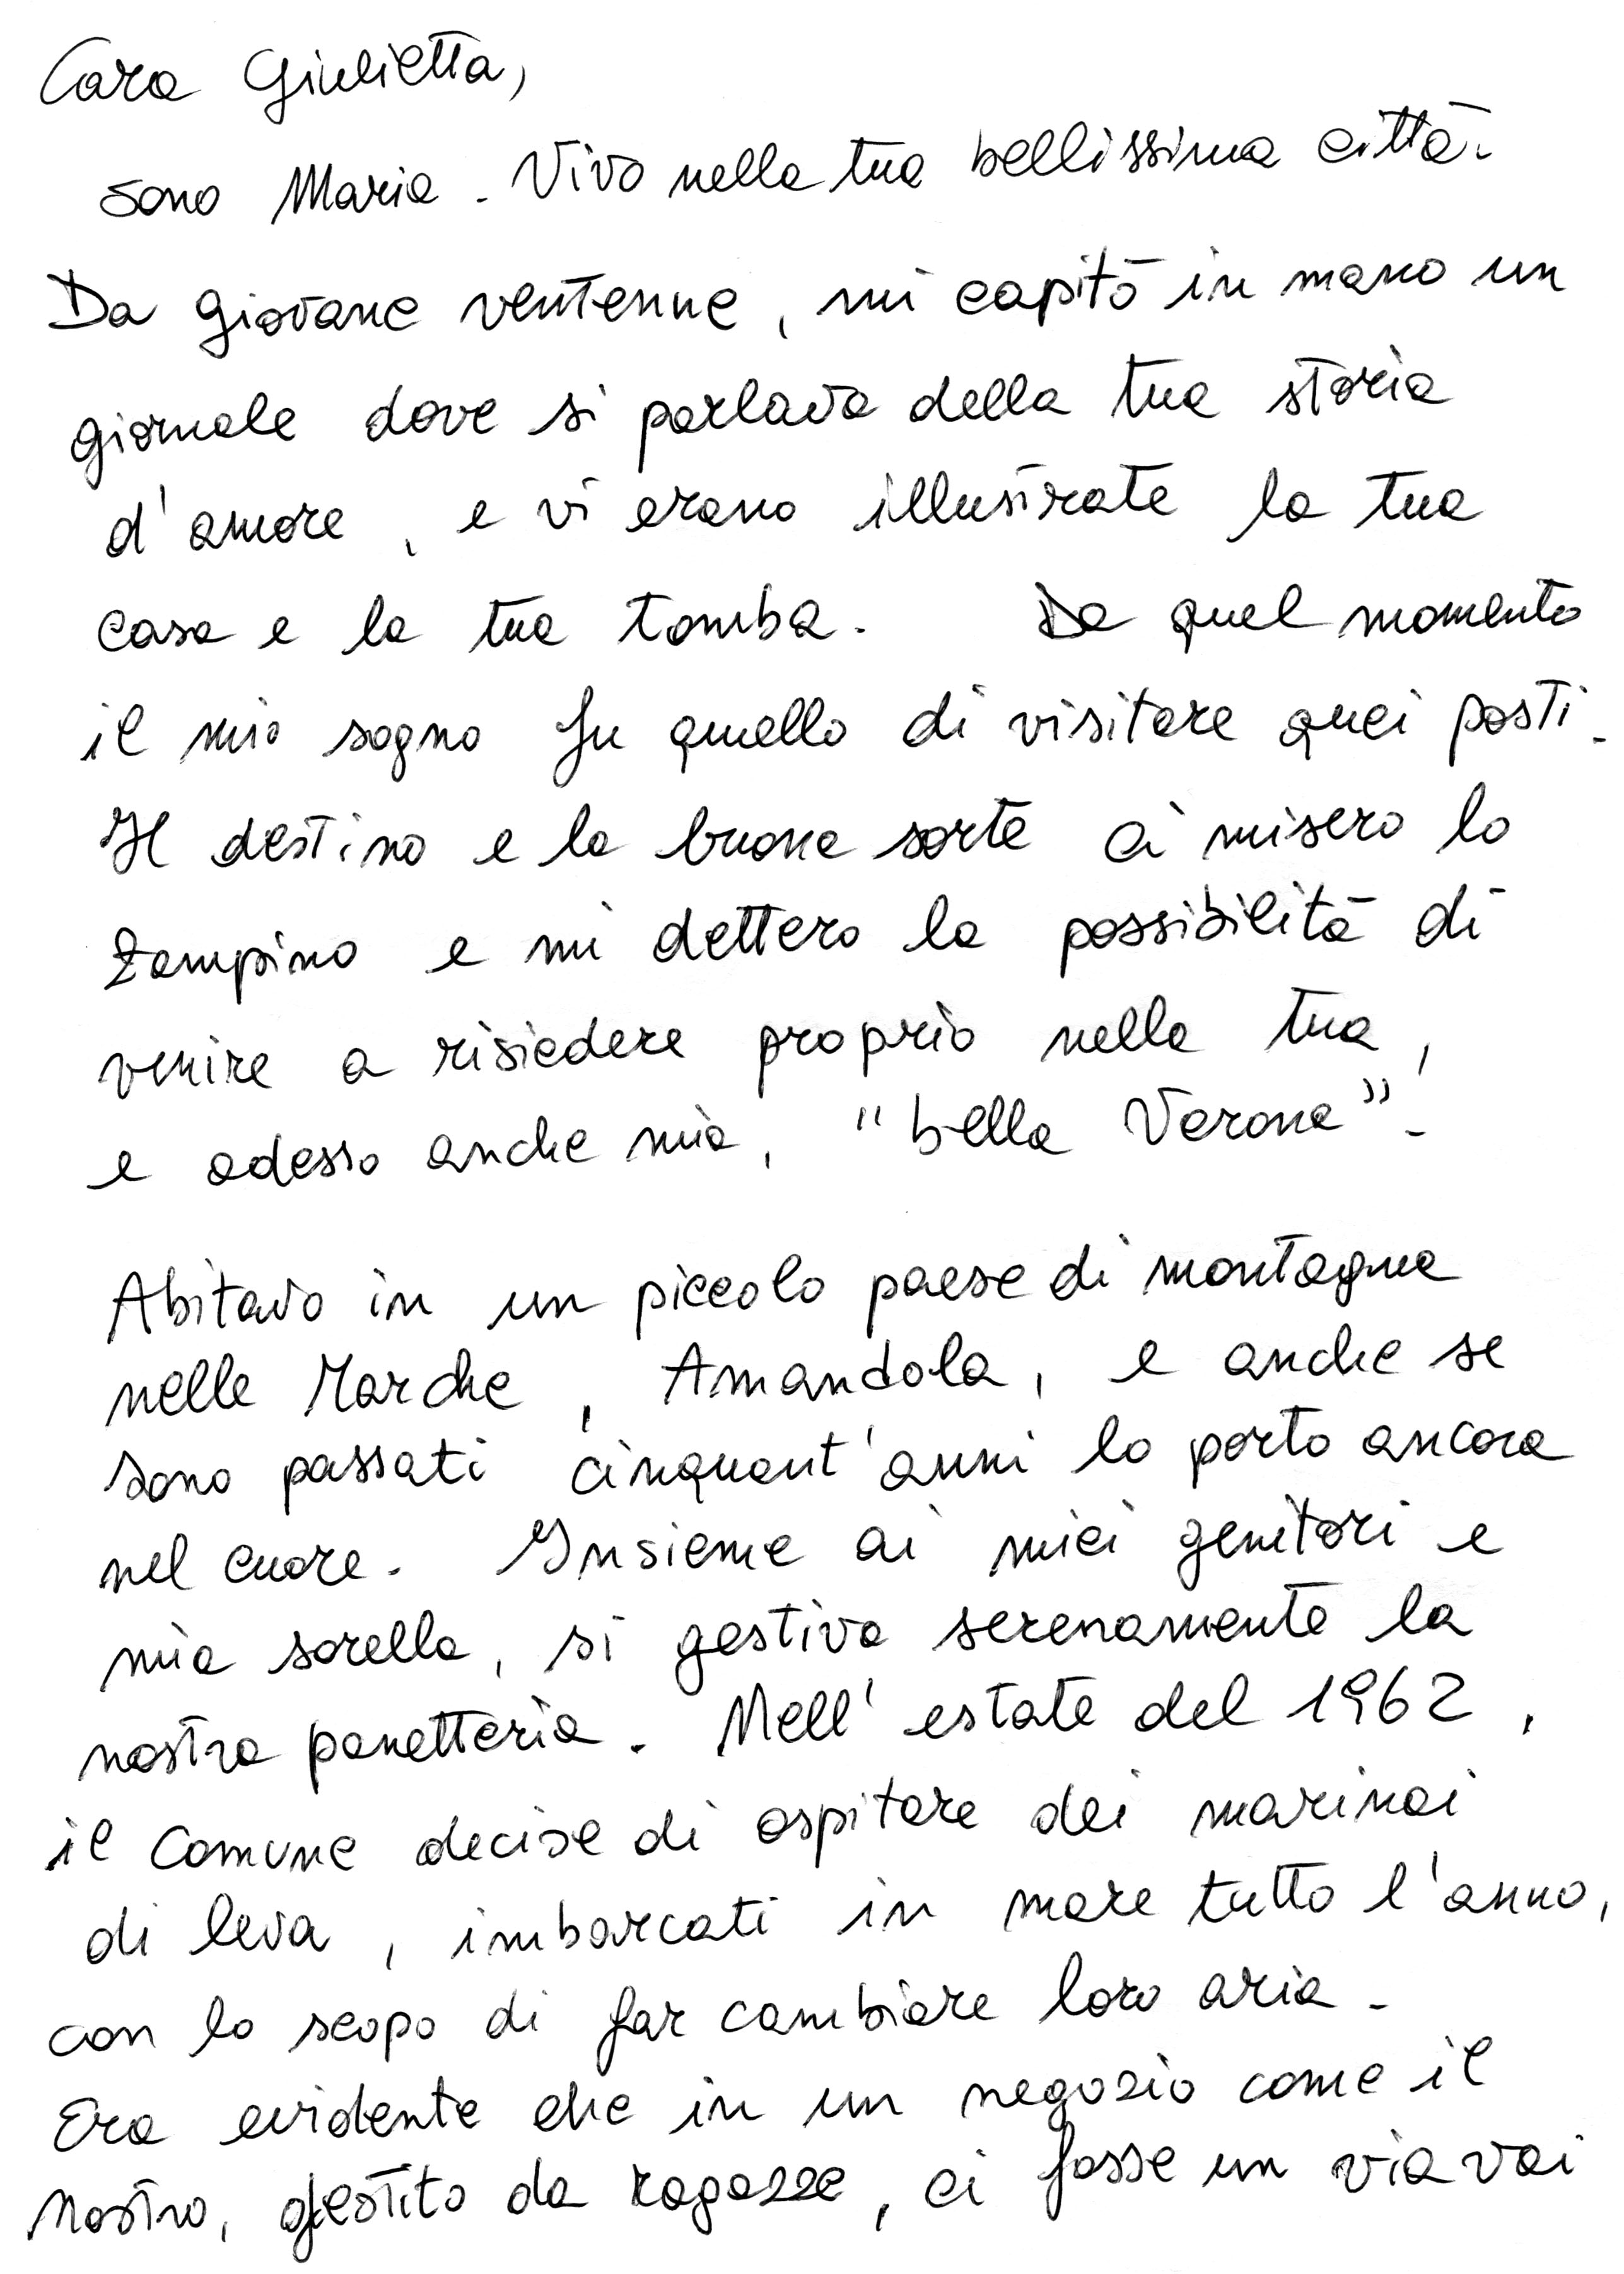 Cara Giulietta,
sono Maria. Vivo nella tua bellissima città.
Da giovane ventenne, mi capitò in mano un
giornale dove si parlava della tua storia
d'amore, e vi erano illustrate la tua
casa e la tua tomba. Da quel momento
il mio sogno fu quello di visitare quei posti.
Il destino e la buona sorte ci misero lo
zampino e mi dettero la possibilità di
venire a risiedere proprio nella tua,
e adesso anche mia, "bella Verona".
Abitavo in un piccolo paese di montagna
nelle Marche, Amandola, e anche se
sono passati cinquant'anni lo porto ancora
nel cuore. Insieme ai miei genitori e
mia sorella, si gestiva serenamente la
nostra panetteria. Nell'estate del 1962,
il Comune decise di ospitare dei marinai
di leva, imbarcati in mare tutto l'anno,
con lo scopo di far cambiare loro aria.
Era evidente che in un negozio come il
nostro, gestito da ragazze, ci fosse un via vai